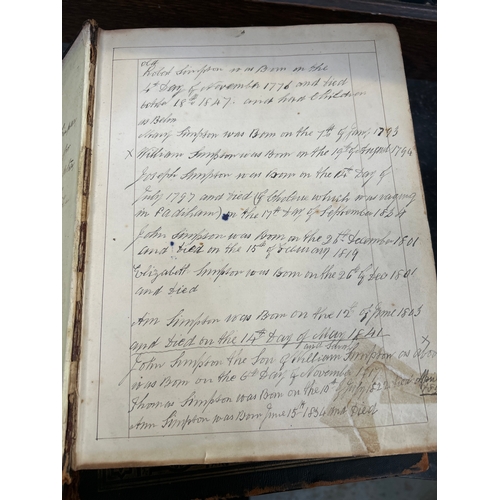 old
Robert Simpson was Born on the
4th Day of November 1776 and died
18th 1847. and had Children
as Below
Mary Simpson was Born on the 7th of Jany 1793
X William Simpson was Born on the 19th of August 1794
Joseph Simpson was Born on the 15th Day of
July 1797 and Died (of Cholera which was raging
in Padiham) on the 17th Day of September 1834
John Simpson was Born on the 26th December 1801
and Died on the 15th of February 1819
Elizabeth Simpson was Born on the 26th of Dec 1801
and Died
Ann Simpson was Born on the 12th of June 1803
and Died on the 14th Day of May 1841
John Simpson the Son of William Simpson as above X
was Born on the 6th Day of November
Thomas Simpson was Born on the 10th of July 1822 Died
Ann Simpson was Born June 15th 1834 and Died